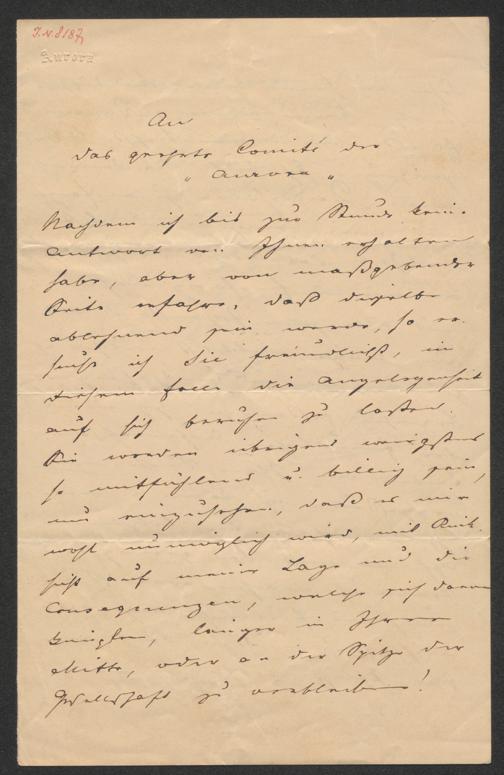 J.N. 8187
Aurora
An
das geehrte Comité der
"Aurora"
Nachdem ich bis zur Stunde keine
Antwort von Ihnen erhalten
habe, aber von maßgebender
Seite erfahre, daß dieselbe
ablehnend sein werde, so er-
suche ich Sie freundlichst, in
diesem Falle die Angelegenheit
auf sich beruhen zu lassen.
Sie werden übrigens wenigstens
so mitfühlend u. billig sein,
um einzusehen, daß es mir
wohl unmöglich wird, mit Rück-
sicht auf meine Lage und die
Consequenzen, welche sich daran
knüpfen, länger in Ihrer
Mitte, oder an der Spitze der
Gesellschaft zu verbleiben!